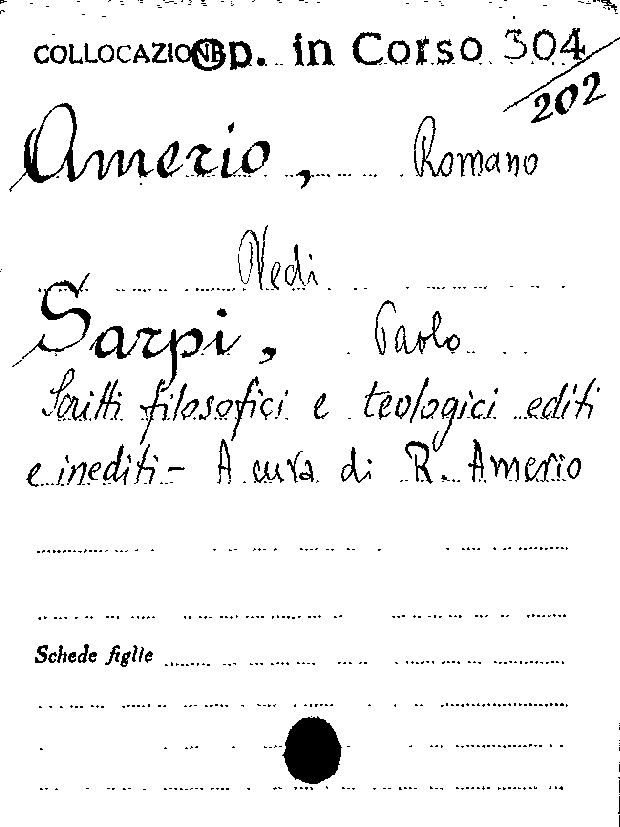 COLLOCAZIONE Op. in Corso 304/202
Amerio, Romano
Vedi
Sarpi, Paolo
Scritti filosofici e teologici editi
e inediti - A cura di R. Amerio
Schede figlie